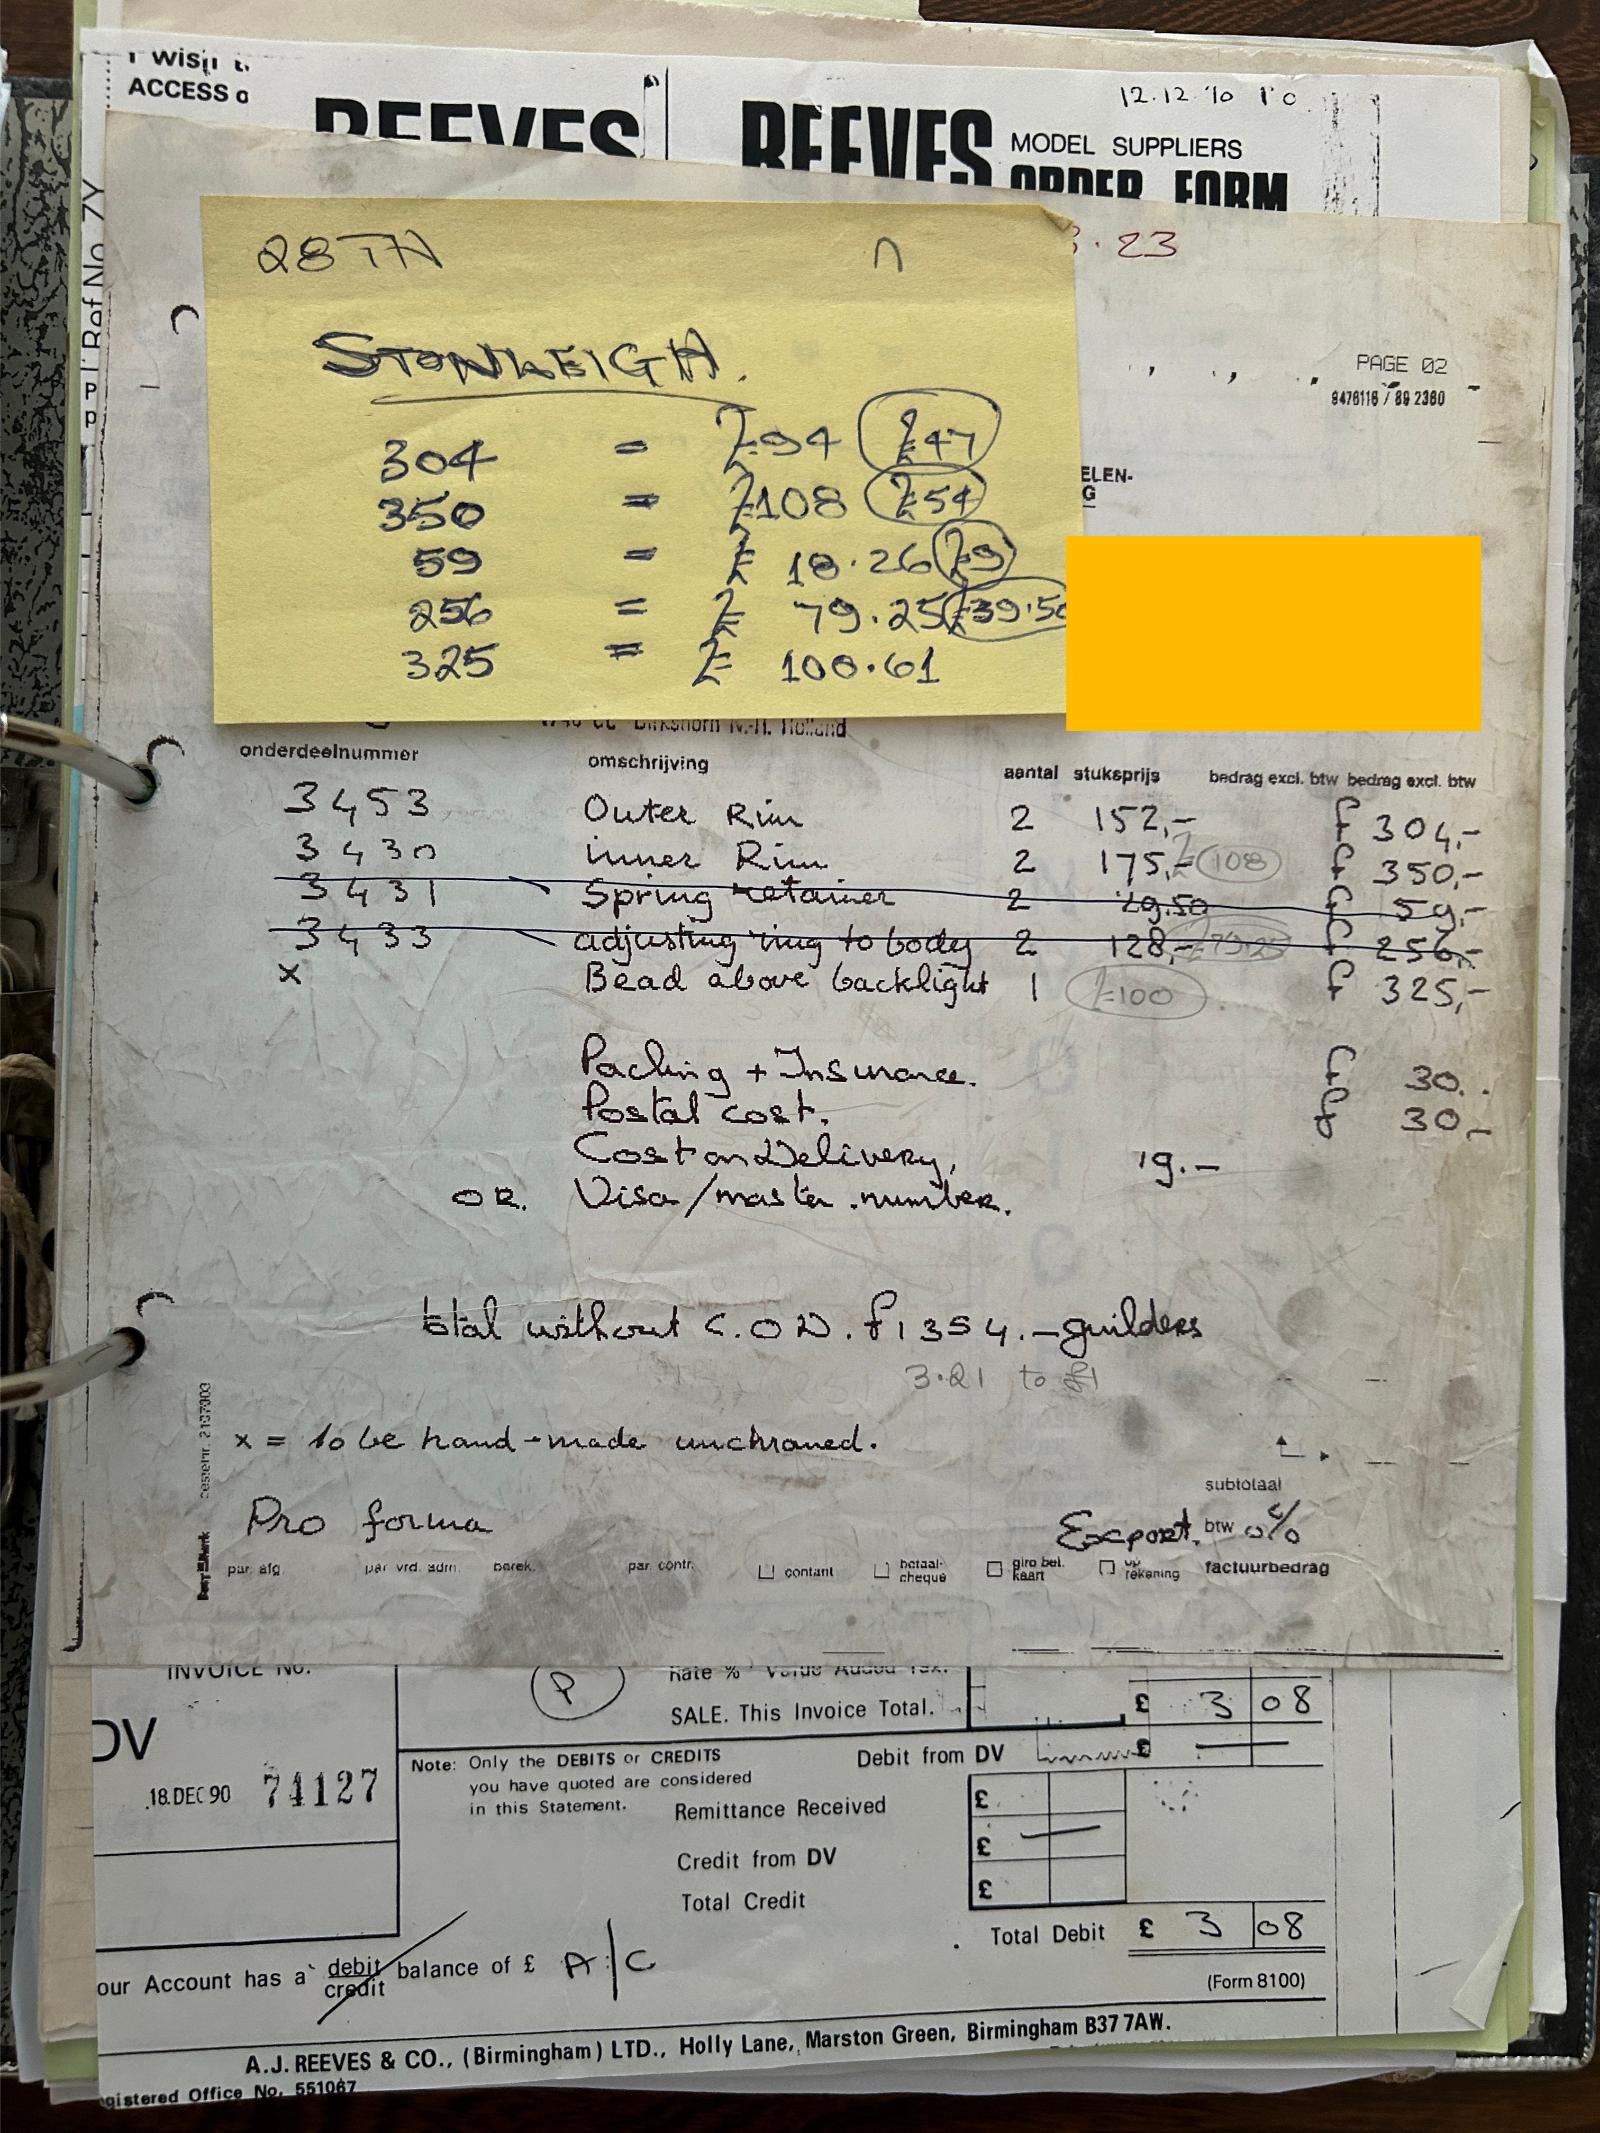 ACCESS
REEVES
REEVES MODEL SUPPLIERS
ORDER FORM
12.12.90
23
28TH
STONELEIGH.
304 = £94 £47
350 = £108 £54
59 = £ 18.26 £9
256 = £ 79.25 £39.50
325 = £ 100.61
PAGE 02
8476116 / 89 2360
ELEN-
G
Dirkshorn N.-H. Holland
onderdeelnummer omschrijving aantal stuksprijs bedrag excl. btw bedrag excl. btw
3453 Outer Rim 2 152,- f 304,-
3430 inner Rim 2 175,- £108 f 350,-
3431 Spring retainer 2 29.50 f 59,-
3433 adjusting ring to body 2 128,- £79.25 f 256,-
x Bead above backlight 1 £100 f 325,-
Packing + Insurance. f 30.
Postal cost. f 30,-
Cost on Delivery, 19.-
OR. Visa/master number.
total without C.O.D. f1354.- guilders
3.21 to £1
x = to be hand-made unchromed.
subtotaal
Pro forma
Export. btw 0%
par. afg. par vrd. adm. berek. par. contr. contant betaal-cheque giro bet. kaart op rekening factuurbedrag
INVOICE No.
P
Rate % Value Added Tax.
SALE. This Invoice Total. £ 3 08
DV
Note: Only the DEBITS or CREDITS
you have quoted are considered
in this Statement.
Debit from DV £ —
18.DEC 90 74127
Remittance Received £
Credit from DV £ —
Total Credit £
Total Debit £ 3 08
our Account has a debit balance of £ A/C
credit
(Form 8100)
A.J. REEVES & CO., (Birmingham) LTD., Holly Lane, Marston Green, Birmingham B37 7AW.
gistered Office No. 551067